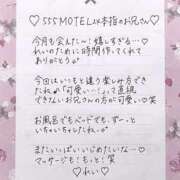 ♡555MOTEL 本指のお兄さん♡
今月も会えたん~!嬉しすぎる…♡
れいのために時間作ってくれて
ありがとう♡
今回はいつもと違う楽しみ方でき
たね♡「可愛い…!」って直視
できないお兄さんの方が可愛い♡笑
お風呂でもベッドでも、ずーっと
いちゃいちゃしたね♡
またいっぱいいじめたいな…♡
マッサージも!もっと!笑
♡れい♡